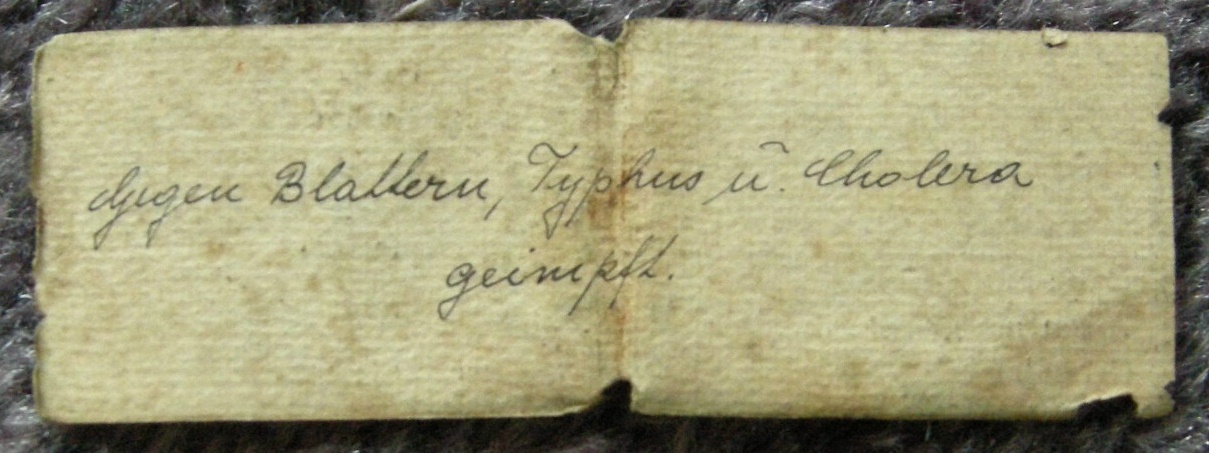 Gegen Blattern, Typhus u. Cholera
geimpft.